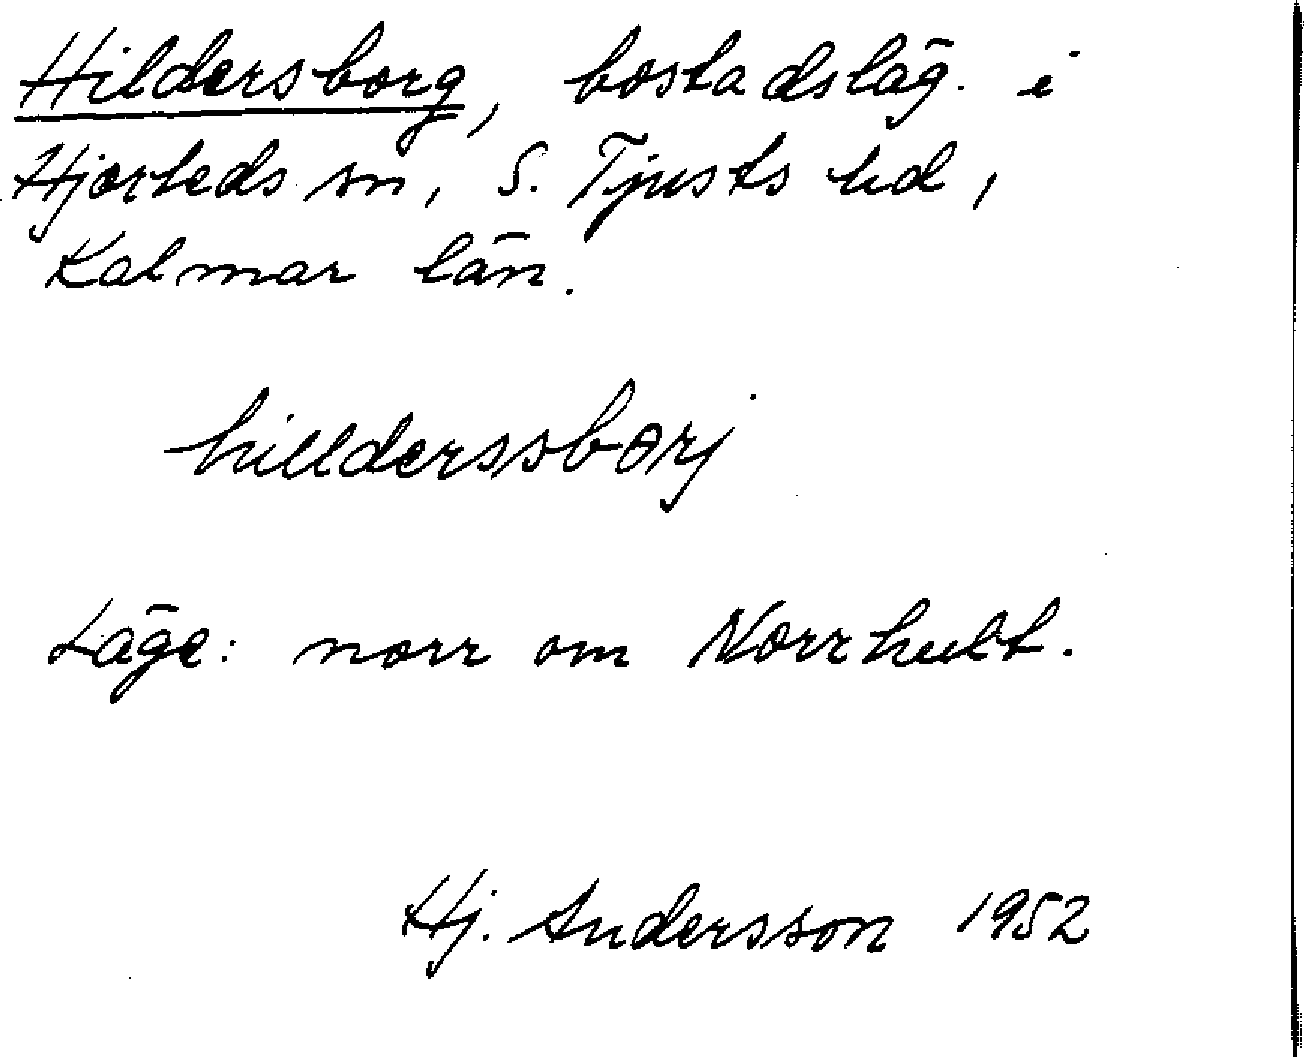 Hildersborg, bostadsläg. i
Hjorteds sn, S. Tjusts hd,
Kalmar län.
hillderssbɵrj
Läge: norr om Norrhult.
Hj. Andersson 1952